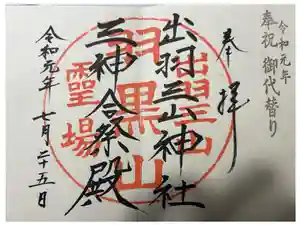 令和元年
奉祝 御代替り
奉拝
出羽三山神社
三神合祭殿
令和元年 七月二十五日
羽黒山
靈場